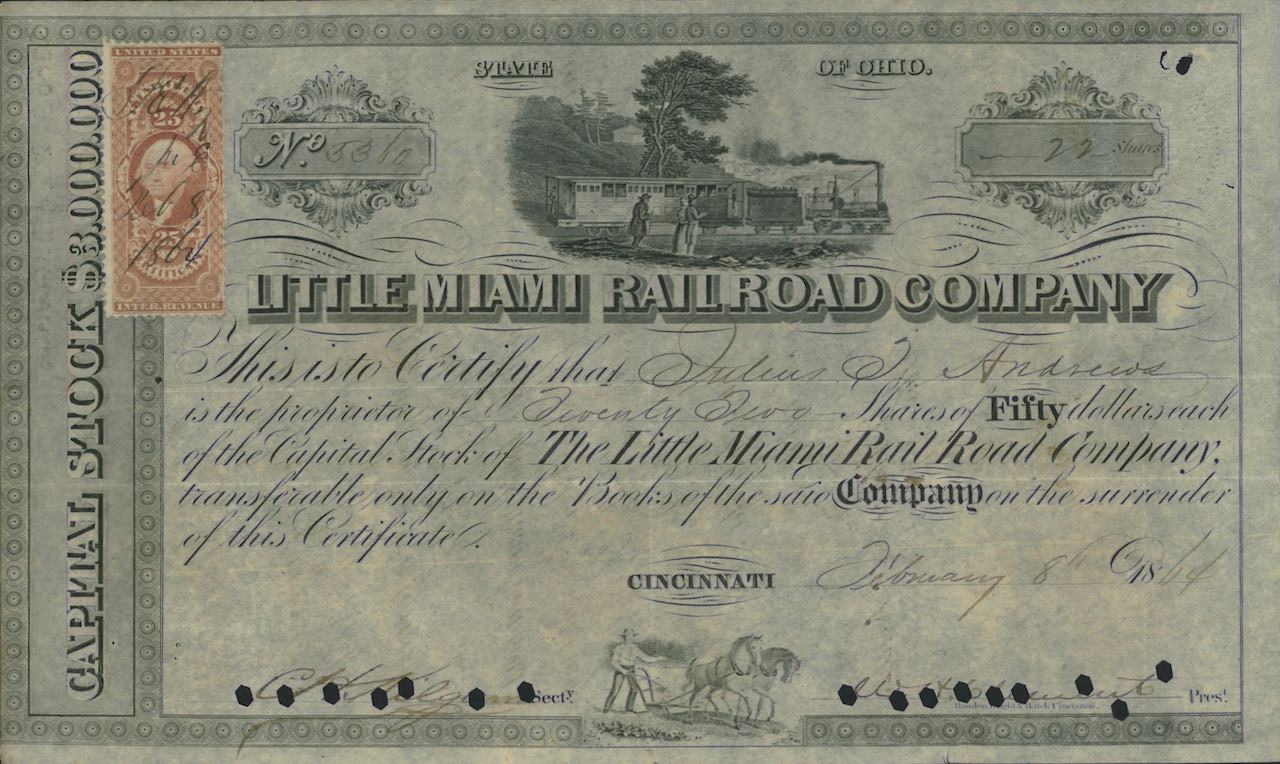 CAPITAL STOCK $3.000.000
UNITED STATES
25
25
1864
INTER. REVENUE
STATE OF OHIO.
No 5360
22 Shares
LITTLE MIAMI RAILROAD COMPANY
This is to Certify that Julius J. Andrews
is the proprietor of Twenty Two Shares of Fifty dollars each
of the Capital Stock of The Little Miami Rail Road Company,
transferable only on the Books of the said Company on the surrender
of this Certificate.
CINCINNATI February 8th 1864
Secty.
Prest.